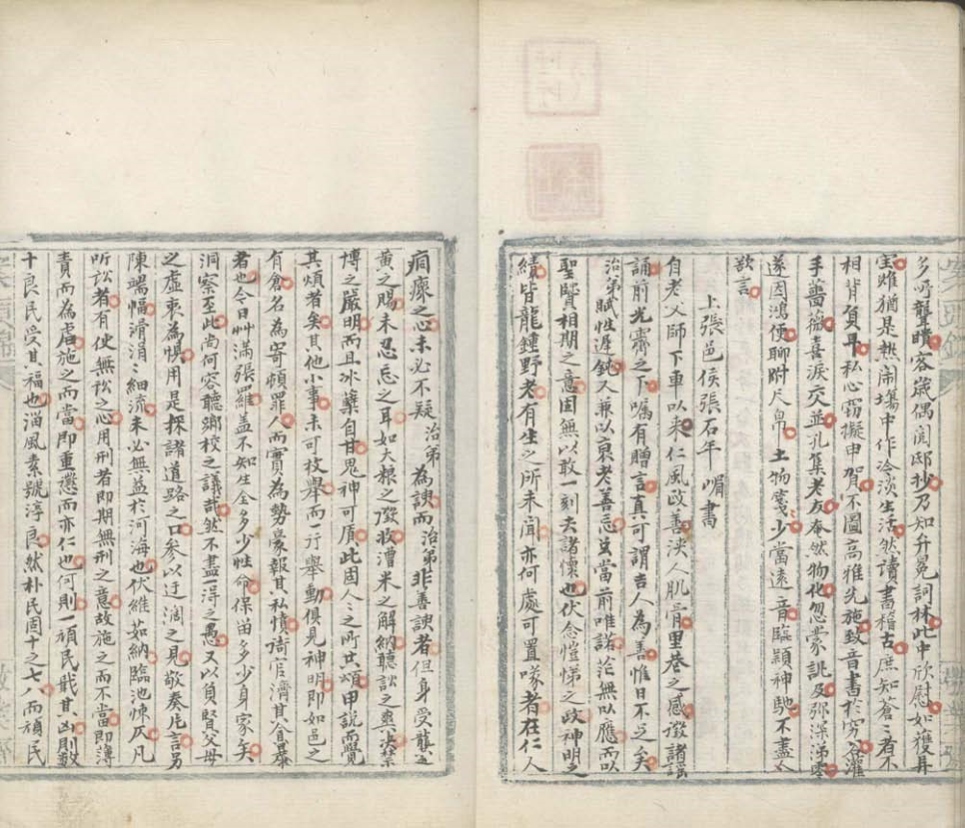 多嗬聾聵容歲偶閱邸抄乃知升冕詞林此中欣慰如獲耳
宝雖猶是熱鬧場中作冷淡生活然讀書稽古庶知蒼〻者不
相背負耳私心窃擬申賀不圖高雅先施致音書於窮谷灌
手薔薇喜淚交並孔集老友奄然物化忽蒙訊及弥深涕零
遂因鴻便聊附尺帛土物戔少當遠音臨穎神馳不盡
欲言
上張邑侯張石年嵋書
自老父師下車以來仁風政善浹人肌膏里巷之感徵諸謡
誦前光霽之下嘱有贈言真可謂吉人為善惟日不乏矣
治弟賦性遲鈍人兼以衰老善忘豈當前唯諾茫無以應而以
聖賢相期之意固無以敢一刻去諸懷也伏念愷悌之政神明之
績皆龍鍾野老有生之所未聞亦何處可置喙者在仁人
痌瘝之心未必不疑治弟為諛而治弟非善諛者但身受龔
黃之賜未忍忘之耳如大粮之徵收漕米之解納聽訟之
博之嚴明而且冰蘗自甘鬼神可质此固人〻之所共頌申說而覺
其煩者矣其他小事未可枚舉而一行舉動俱見神明即如邑之
有倉名為寄頓罪人而實為勢豪報其私憤衙官濟其貪壑
者也今日艸滿張羅盖不知生全多少性命保留多少身家矣
洞察至此尚何容聽鄉校之議哉然不盡一得之愚又以負賢父母
之虛衷為懼用是探諸道路之口參以迂濶之見敬奏卮言另
陳端幅涓涓〻細流未必無益於河海也伏維茹納臨池悚仄凡
听訟者有使無訟之心用刑者即期無刑之意故施之而不當即薄
責而為虐施之而當即重懲而亦仁也何則一頑民戢其凶則數
十良民受其福也淄風素號淳良然朴民固十之七八而頑民